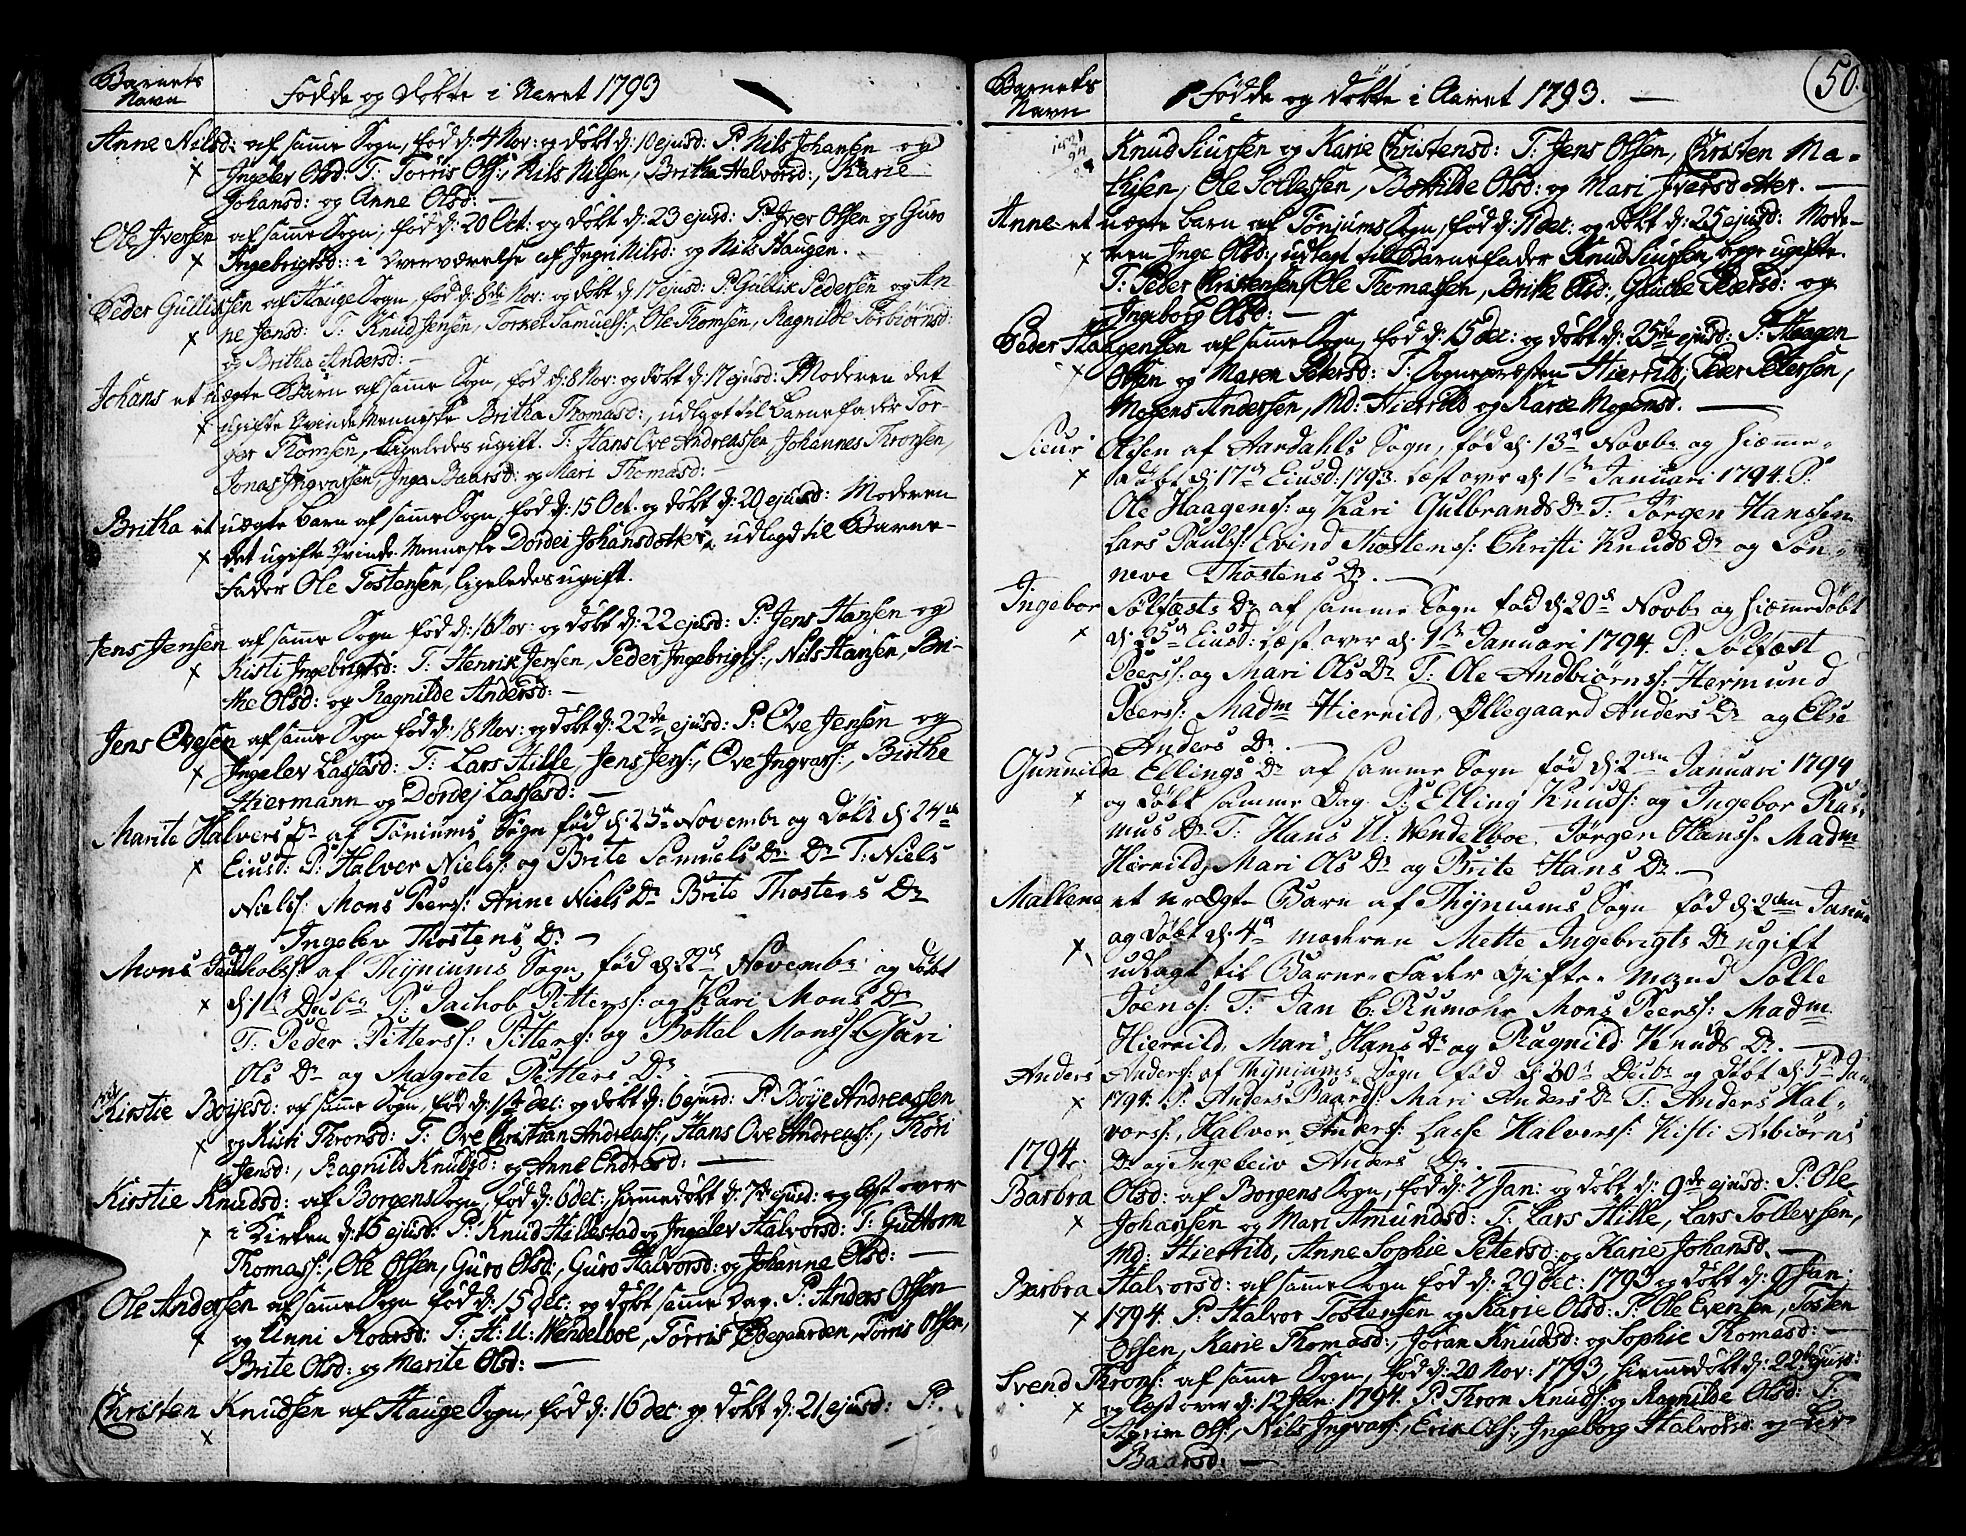 Barnets
Navn
Fødde og døbte i Aaret 1793
Anne Nilsd: af samme Sogn, fød d: 4 Nov: og døbt d: 10 ejusd: P. Nils Johansen og
Ingelev Olsd: T: Torris Ols:, Nils Nilsen, Britha Halvorsd:, Karie
Johansd: og Anne Olsd: —
Ole Iversen af samme Sogn, fød d: 20 Oct: og døbt d: 23 ejusd: P. Iver Olsen og Guro
Ingebrigtsd: i Overværelse af Ingri Nilsd: og Nils Haugen.
Peder Gulliksen af Hauge Sogn, fød d: 8de Nov: og døbt d: 17 ejusd: P. Gullik Pedersen og An-
ne Jensd: T: Knud Jensen, Torkel Samuels:, Ole Thomsen, Ragnilde Torbiørnsd:
og Britha Andersd: —
Johans et uægte Barn af samme Sogn, fød d: 8 Nov: og døbt d: 17 ejusd: Moderen det
ugifte Qvinde Menneske Britha Thomasd:, udlagt til Barnefader Tor-
ger Thomsen, ligeledes ugift. T: Hans Ove Andreassen, Johannes Thronsen
Jonas Ingvarsen, Inga Baarsd: og Mari Thomasd: —
Britha et uægte barn af samme Sogn, fød d: 15 Oct. og døbt d: 20 ejusd: Moderen
det ugifte Qvinde-Menneske Dordei Johansdotter, udlagd til Barne-
fader Ole Tostensen, ligeledes ugift.
Jens Jensen af samme Sogn fød d: 16 Nov: og døbt d: 22 ejusd: P. Jens Hansen og
Kisti Ingebrigtsd: T: Henrik Jensen, Peder Ingebrigts:, Nils Hansen, Bri-
the Olsd: og Ragnilde Andersd: —
Jens Ovesen af samme Sogn fød d: 18 Nov: og døbt d: 22de ejusd: P. Ove Jensen og
Ingelev Lassesd: T: Lars Hille, Jens Jens:, Ove Ingvars:, Birthe
Hiermann og Dordej Lassesd: —
Marite Halvers Dr af Tøniums Sogn fød d: 23de Novembr og døbt d: 24de
Eiusd: P: Halver Niels: og Brite Samuels Dr T: Niels
Niels: Mons Peers: Anne Niels Dr Brite Thostens Dr
og Ingelev Thostens Dr —
Mons Jachobs: af Thyniums Sogn fød d: 22d Novembr og døbt
d: 1st Decbr P: Jachob Pitters: og Kari Mons Dr
T: Peder Pitters: Pitters: og Bottel Mons: Guri
Ols Dr og Magrete Pitters Dr
Kirstie Boijesd: af samme Sogn, fød d: 1st Dec: og døbt d: 6 ejusd: P. Boije Andreassen
og Kisti Thronsd: T: Ove Christian Andreas:, Hans Ove Andreass:, Thori
Jensd:, Ragnild Knudsd: og Anne Endresd: —
Kirstie Knudsd: af Borgens Sogn, fød d: 6 dec: hiemmedøbt d: 7de ejusd: og læst over
i Kirken d: 15 ejusd: P. Knud Hillestad og Ingelev Halvorsd: T: Guttorm
Thomass:, Ole Olsen, Guro Olsd:, Guro Halvorsd: og Johanne Olsd: —
Ole Andersen af samme Sogn fød d: 15 dec: og døbt samme dag. P: Anders Olsen
og Unni Roarsd: T: H: U: Wendelboe, Torris Ødegaarden, Torris Olsen,
Brite Olsd: og Marite Olsd: —
Christen Knudsen af Hauge Sogn, fød d: 16 dec og døbt d: 21 ejusd: P.
50.
Barnets
Navn
Fødde og døbte i Aaret 1793. —
Knud Siursen og Karie Christensd: T: Jens Olsen, Christen Ma-
thisen, Ole Tollessen, Botilde Olsd: og Mari Iversdotter. —
Anne et uægte barn af Tonjums Sogn, fød d: 11 dec: og døbt d: 25 ejusd: Mode-
ren Inge Olsd:, udlagt til Barnefader Knud Siursen, begge ugifte.
T: Peder Christensen, Ole Thomassen, Brithe Olsd:, Giathe Pedersd: og
Ingeborg Olsd: —
Peder Haagensen af samme Sogn, fød d: 15 dec: og døbt d: 25de ejusd: P: Haagen
Olsen og Maren Petersd: T: Sognepræsten Hierrild, Peder Petersen,
Mogens Andersen, Md: Hierrild og Karie Mogensd. —
Sieur Olsen af Aardahls Sogn, fød d: 13d Novbr og hiemme-
døbt d: 17d Eiusd: 1793. læst over d: 1st Januari 1794. P:
Ole Haagens: og Kari Gulbrands Dr T: Jørgen Hanssen
Lars Pauls: Evind Thostens: Christi Knuds Dr og Sön-
neve Thostens Dr. —
Ingebor Solfæsts Dr af samme Sogn fød d: 20d Novbr og hiemmedøbt
d: 25d Eiusd: læst over d: 1st Januari 1794. P: Solfæst
Peers: og Mari Ols Dr T: Ole Andbiørns: Hermund
Peers: Madm Hierrild, Øllegaard Anders Dr og Else
Anders Dr.
Gunnilde Ellings Dr af samme Sogn fød d: 2den Januari 1794
og døbt samme Dag. P: Elling Knuds: og Ingebor Ras-
mus Dr T: Hans U: Wendelboe. Jørgen Hans: Madm
Hierrild, Mari Ols Dr og Brite Hans Dr. —
Mallene et uægte Barn af Thyniums Sogn fød d: 2den Janua
og døbt d: 4d moderen Mette Ingebrigts Dr ugift
udlagt til Barne-Fader Gifte-Mand Tolle
Joens: T: Jan C. Rumohr Mons Peers: Madm
Hierrild, Mari Hans Dr og Ragnild Knuds Dr. —
Anders Anders: af Thyniums Sogn fød d: 30d Decbr og døbt d: 5d Jan
1794. P: Anders Baards: Mari Anders Dr T: Anders Hal-
vors:, Halver Anders: Lasse Halvers: Kisti Asbiørns
1794. Dr og Ingeleiv Anders Dr.
Barbra Olsd: af Borgens Sogn, fød d: 7 Jan: og døbt d: 9de ejusd: P. Ole
Johansen og Mari Amundsd: T: Lars Hille, Lars Tollevsen,
Md: Hierrild, Anne Sophie Petersd: og Karie Johansd. —
Barbra Halvorsd: af samme Sogn fød d: 29 dec: 1793 og døbt d: 9 Jan:
1794. P. Halvor Tostensen og Karie Olsd: T: Ole Evensen, Tosten
Olssen, Karie Thomasd:, Joran Knudsd: og Sophie Thomasd: —
Svend Throns: af samme Sogn, fød d: 20 Nov: 1793, hiemmedøbt d: 22de ejusd:
og læst over d: 12 Jan: 1794. P. Thron Knuds: og Ragnilde Olsd: T:
Asgrim Ols:, Nils Ingvars:, Erik Ols:, Ingeborg Halvorsd: og Liv
Baarsd: —